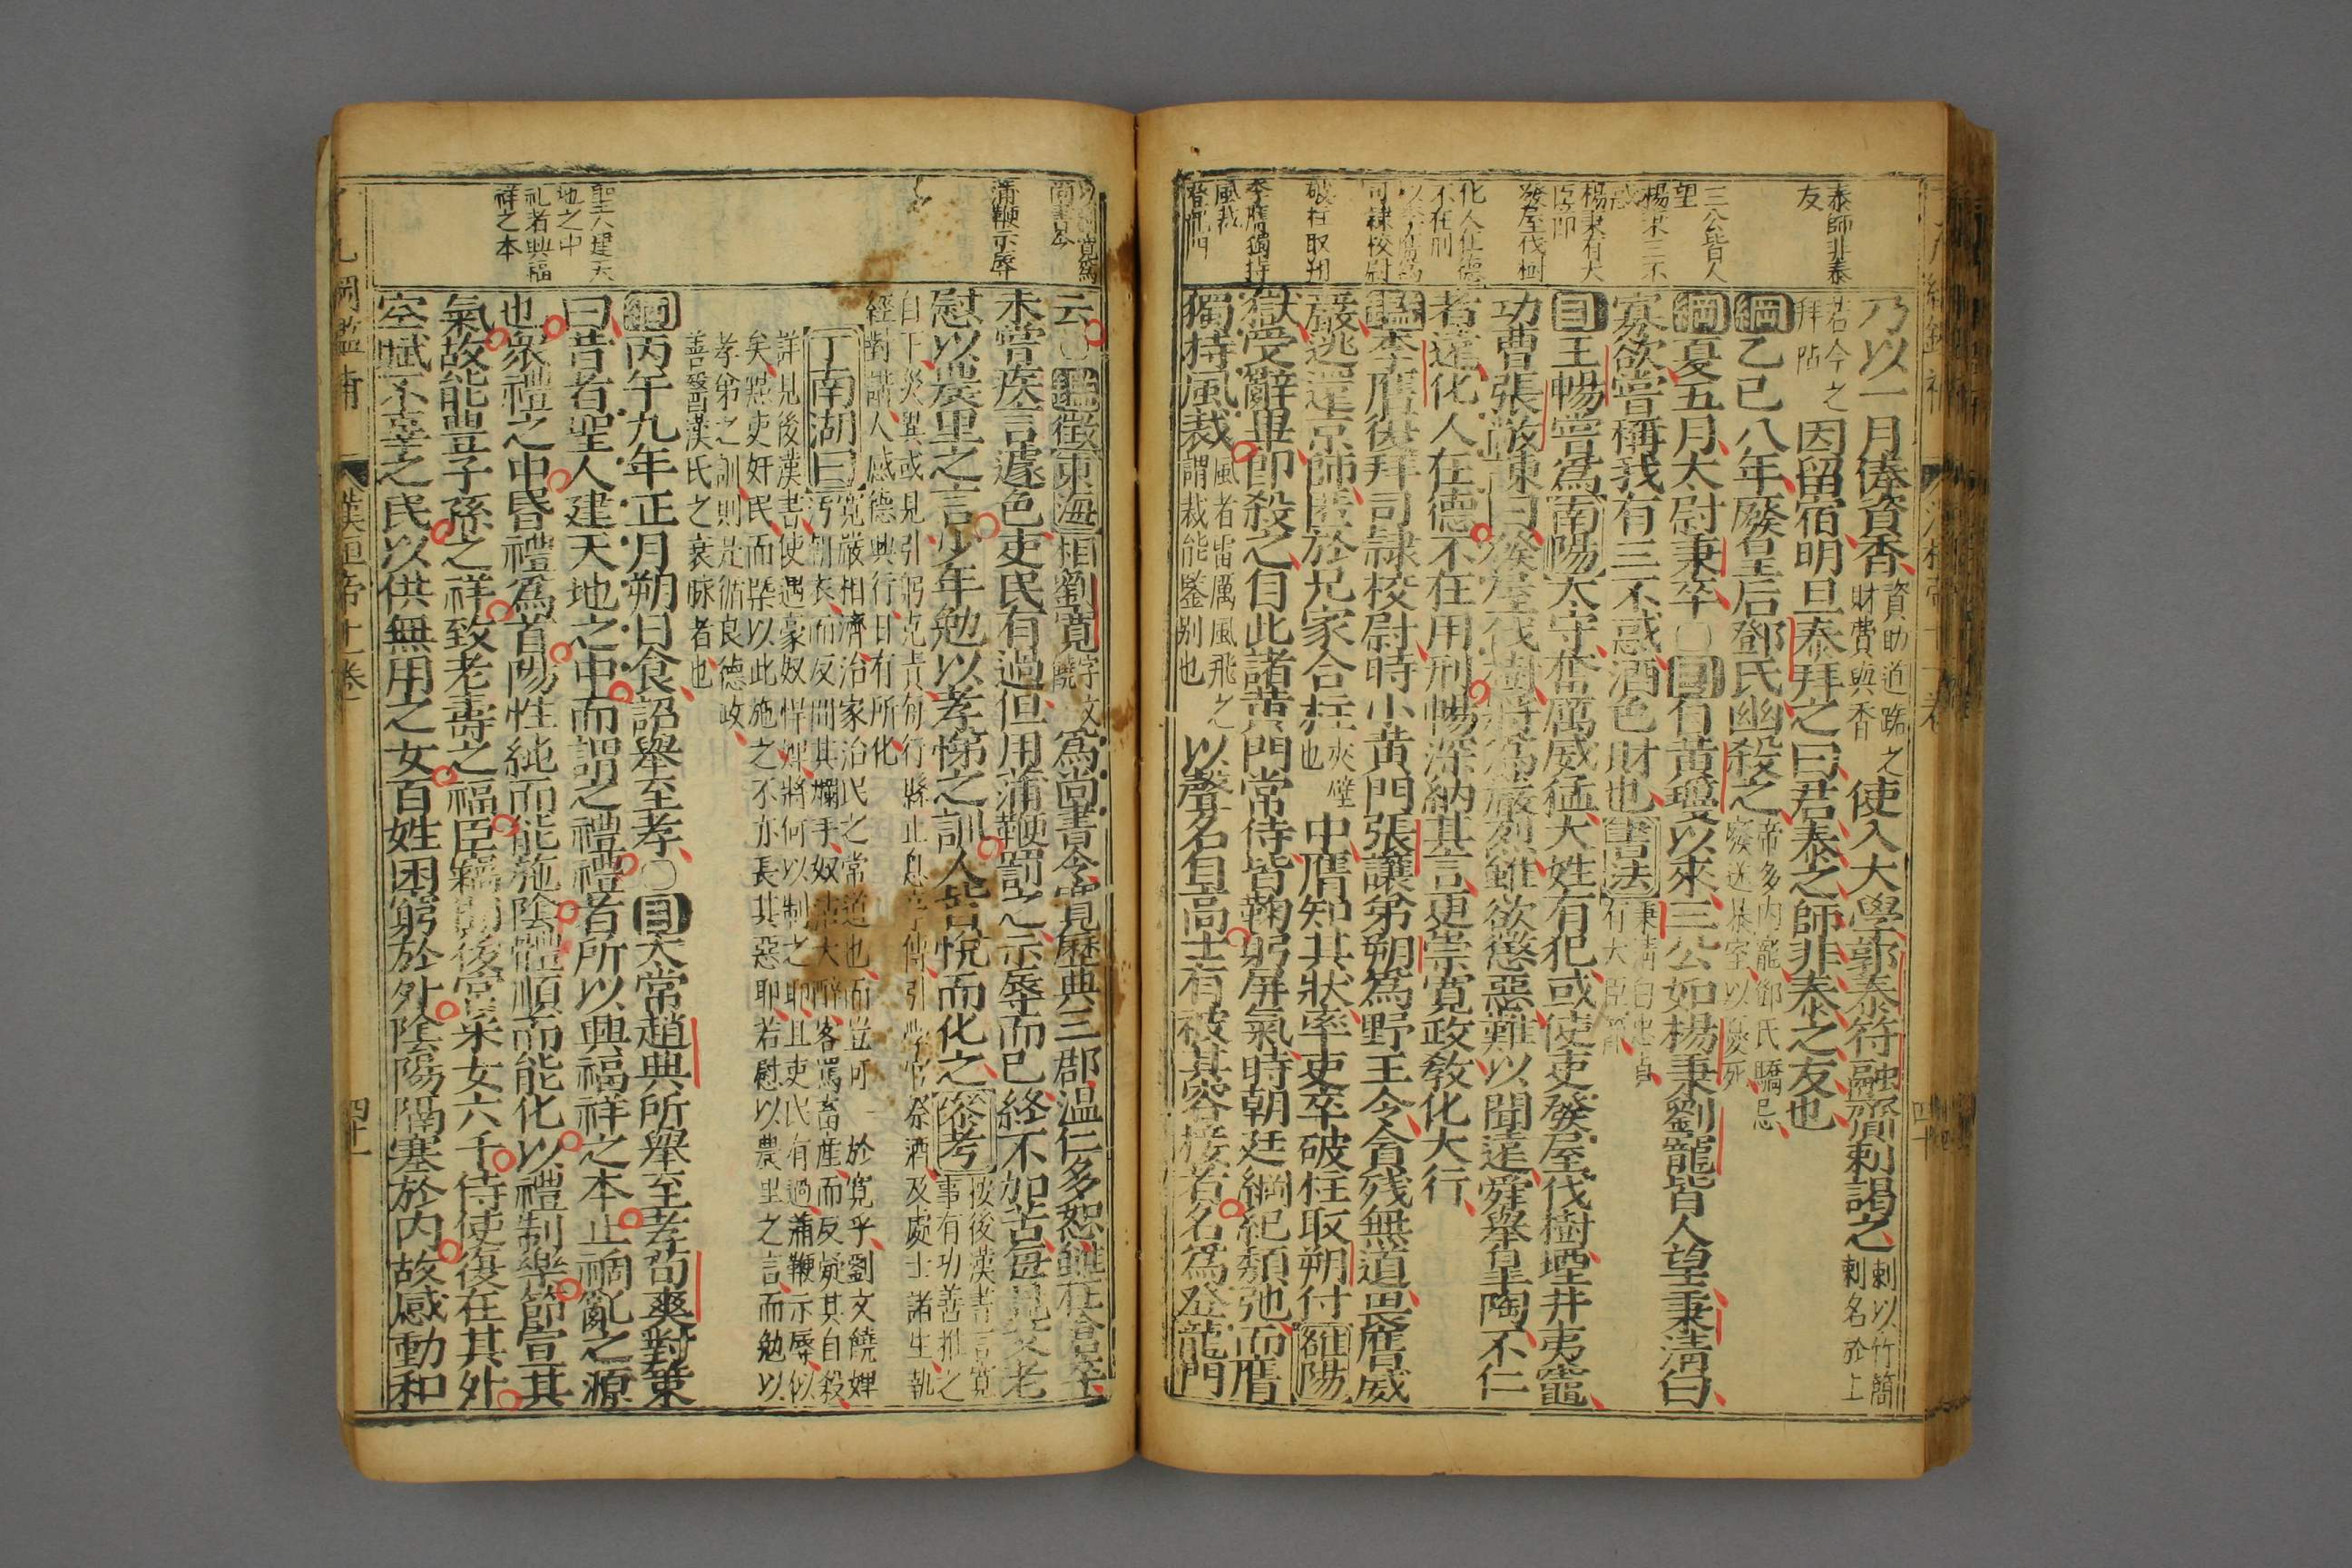 泰師非泰
友
三公皆人
望
楊秉三不
惑
楊秉有大
臣節
發屋伐樹
化人在德
不在刑
以李膺爲
司隷校尉
破柱取朔
李膺獨持
風裁
登龍門
乃以一月俸資香資助道路之財費與香使入大學郭泰符融齎刺謁之刺以竹簡刺名於上
若今之拜帖因留宿明旦泰拜之曰君泰之師非泰之友也
綱乙巳八年廢皇后鄧氏幽殺之帝多內寵鄧氏驕忌廢送暴室以憂死
綱夏五月太尉秉卒〇目自黃瓊以來三公如楊秉劉寵皆人望秉清白
寡欲嘗稱我有三不惑酒色財也書法秉清白忠貞有大臣節
目王暢嘗爲南陽太守奮厲威猛大姓有犯或使吏發屋伐樹堙井夷竈
功曹張敞諫曰發屋伐樹將爲嚴烈雖欲懲惡難以聞遠舜舉臯陶不仁
者遠化人在德不在用刑暢深納其言更崇寛政敎化大行
鑑李膺復拜司隷校尉時小黃門張讓弟朔爲野王令貪殘無道畏膺威
嚴逃還京師匿於兄家合柱夾壁也中膺知其狀率吏卒破柱取朔付雒陽
獄受辭畢卽殺之自此諸黃門常侍皆鞠躬屏氣時朝廷綱紀頹弛而膺
獨持風裁風者雷厲風飛之謂裁能鑒别也以聲名自高士有被其容接者名爲登龍門
以劉寬爲
尚書令
蒲鞭示辱
聖人建天
地之中
礼者興福
祥之本
云〇鑑徵東海相劉寬字文饒爲尚書令寬歷典三郡溫仁多恕雖在倉卒
未嘗疾言遽色吏民有過但用蒲鞭罰之示辱而已終不加苦每見父老
慰以農里之言少年勉以孝悌之訓人皆悅而化之叅考按後漢書言寬事有功善推之
自下災異或見引躬克責每行縣止息亭傳引學官祭酒及處士諸生執
經對講人感德興行日有所化
丁南湖曰寬嚴相濟治家治民之常道也而豈可一於寬乎劉文饒婢
汚朝衣而反問其爛手奴沽大醉客罵畜産而反疑其自殺
詳見後漢書使遇豪奴悍婢將何以制之耶且吏民有過蒲鞭示辱似
矣黠吏奸民而槩以此施之不亦長其惡耶若慰以農里之言而勉以
孝弟之訓則是循良德政
善醫漢氏之衰脉者也
綱丙午九年正月朔日食詔舉至孝〇目太常趙典所舉至孝荀爽對策
曰昔者聖人建天地之中而謂之禮禮者所以興福祥之本止禍亂之源
也衆禮之中昏禮爲首陽性純而能施陰體順而能化以禮制樂節宣其
氣故能豐子孫之祥致老壽之福臣竊聞後宮采女六千侍使復在其外
空賦不辜之民以供無用之女百姓困窮於外陰陽隔塞於內故感動和
漢桓帝十一卷
四十一